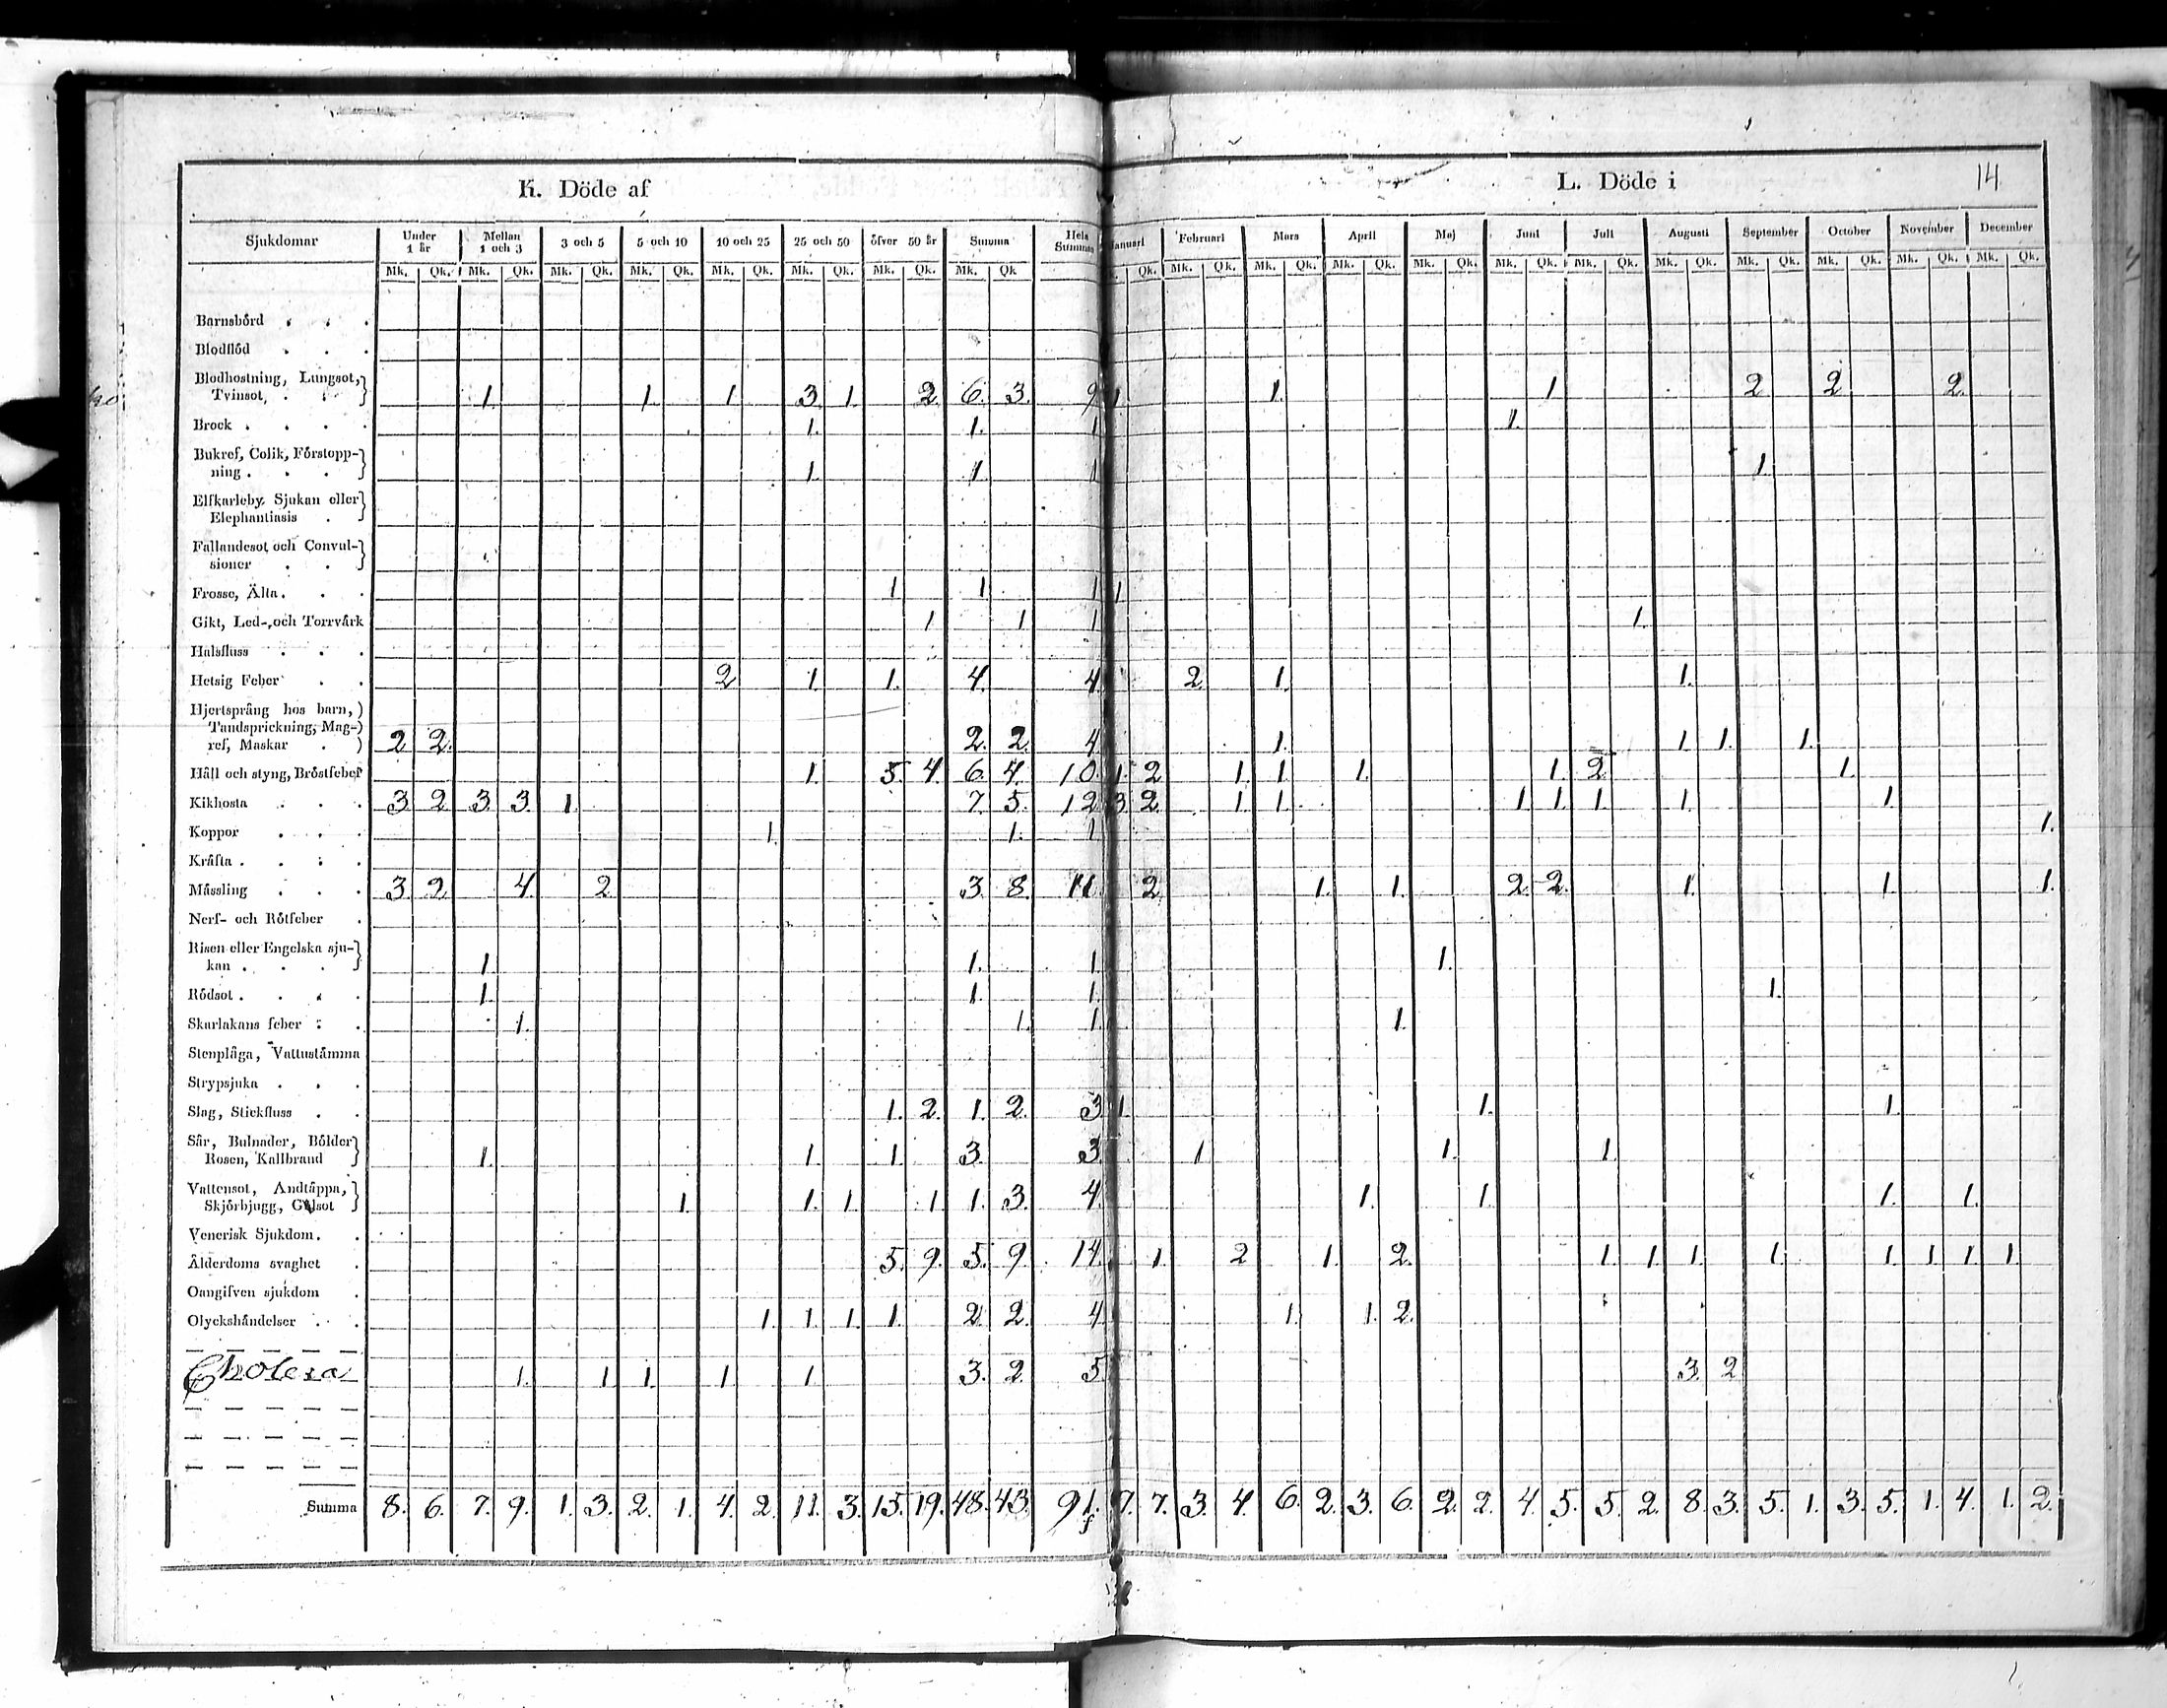 K. Döde af
L. Döde i 14
Sjukdomar Under 1 år Mellan 1 och 3 3 och 5 5 och 10 10 och 25 25 och 50 öfver 50 år Summa Hela Summan Januari Februari Mars April Maj Juni Juli Augusti September October November December
Mk. Qk. Mk. Qk. Mk. Qk. Mk. Qk. Mk. Qk. Mk. Qk. Mk. Qk. Mk. Qk Qk. Mk. Qk. Mk. Qk. Mk. Qk. Mk. Qk. Mk. Qk. Mk. Qk. Mk. Qk. Mk. Qk. Mk. Qk. Mk. Qk. Mk. Qk.
Barnsbörd . . .
Blodflöd . . .
Blodhostning, Lungsot,
Tvinsot, . . 1. 1. 1. 3. 1. 2. 6. 3. 9 1. 1. 1. 2. 2. 2.
Brock . . . . 1. 1. 1 1.
Bukref, Colik, Förstopp-
ning . . . 1. 1. 1 1.
Elfkarleby Sjukan eller
Elephantiasis .
Fallandesot och Convul-
sioner . .
Frosse, Älta . . . 1 1. 1 1.
Gikt, Led-, och Torrvärk 1 1 1 1.
Halsfluss . . .
Hetsig Feber . . 2 1. 1. 4. 4. 2. 1. 1.
Hjertsprång hos barn,
Tandsprickning, Mag-
ref, Maskar . 2. 2. 2. 2. 4 1. 1. 1. 1.
Håll och styng, Bröstfeber 1. 5. 4. 6. 4. 10. 1. 2 1. 1. 1. 1. 2. 1.
Kikhosta . . . 3. 2. 3. 3. 1. 7. 5. 12 3. 2. 1. 1. 1. 1. 1. 1. 1.
Koppor . . . 1. 1. 1 1.
Kräfta . . . .
Mässling . . . 3. 2. 4. 2 3. 8. 11. 2. 1. 1. 2. 2. 1. 1. 1.
Nerf- och Rötfeber .
Risen eller Engelska sju-
kan . . . 1. 1. 1. 1.
Rödsot . . . . 1. 1. 1. 1.
Skarlakans feber . . 1. 1. 1. 1.
Stenplåga, Vattustämma
Strypsjuka . . .
Slag, Stickfluss . . 1. 2. 1. 2. 3 1. 1. 1.
Sår, Bulnader, Bölder
Rosen, Kallbrand 1. 1. 1. 3. 3. 1. 1. 1.
Vattensot, Andtäppa,
Skjörbjugg, Gulsot 1. 1. 1. 1. 1. 3. 4. 1. 1. 1. 1.
Venerisk Sjukdom. .
Ålderdoms svaghet . 5. 9. 5. 9. 14. 1. 2 1. 2. 1. 1. 1. 1. 1. 1. 1. 1.
Oangifven sjukdom .
Olyckshändelser . . 1. 1. 1. 1. 2. 2. 4 1. 1. 2.
Cholera 1. 1. 1. 1. 1. 3. 2. 5. 3. 2.
Summa 8. 6. 7. 9. 1. 3. 2. 1. 4. 2. 11. 3. 15. 19. 48. 43. 91. 7. 7. 3. 4. 6. 2. 3. 6. 2. 2. 4. 5. 5. 2. 8. 3. 5. 1. 3. 5. 1. 4. 1. 2.